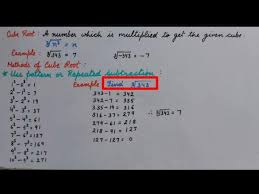 Cube Root : A number which is multiplied to get the given cube.
∛n³ = n
Example : ∛343 = 7 ∛-343 = -7
Methods of Cube Root :
* Use pattern or Repeated subtraction :
Example Find ∛343
1³ - 0³ = 1
2³ - 1³ = 7
3³ - 2³ = 19
4³ - 3³ = 37
5³ - 4³ = 61
6³ - 5³ = 91
7³ - 6³ = 127
8³ - 7³ = 169
9³ - 8³ = 217
10³ - 9³ = 271
343 - 1 = 342
342 - 7 = 335
335 - 19 = 316
316 - 37 = 279
279 - 61 = 218
218 - 91 = 127
127 - 127 = 0
∴ ∛343 = 7